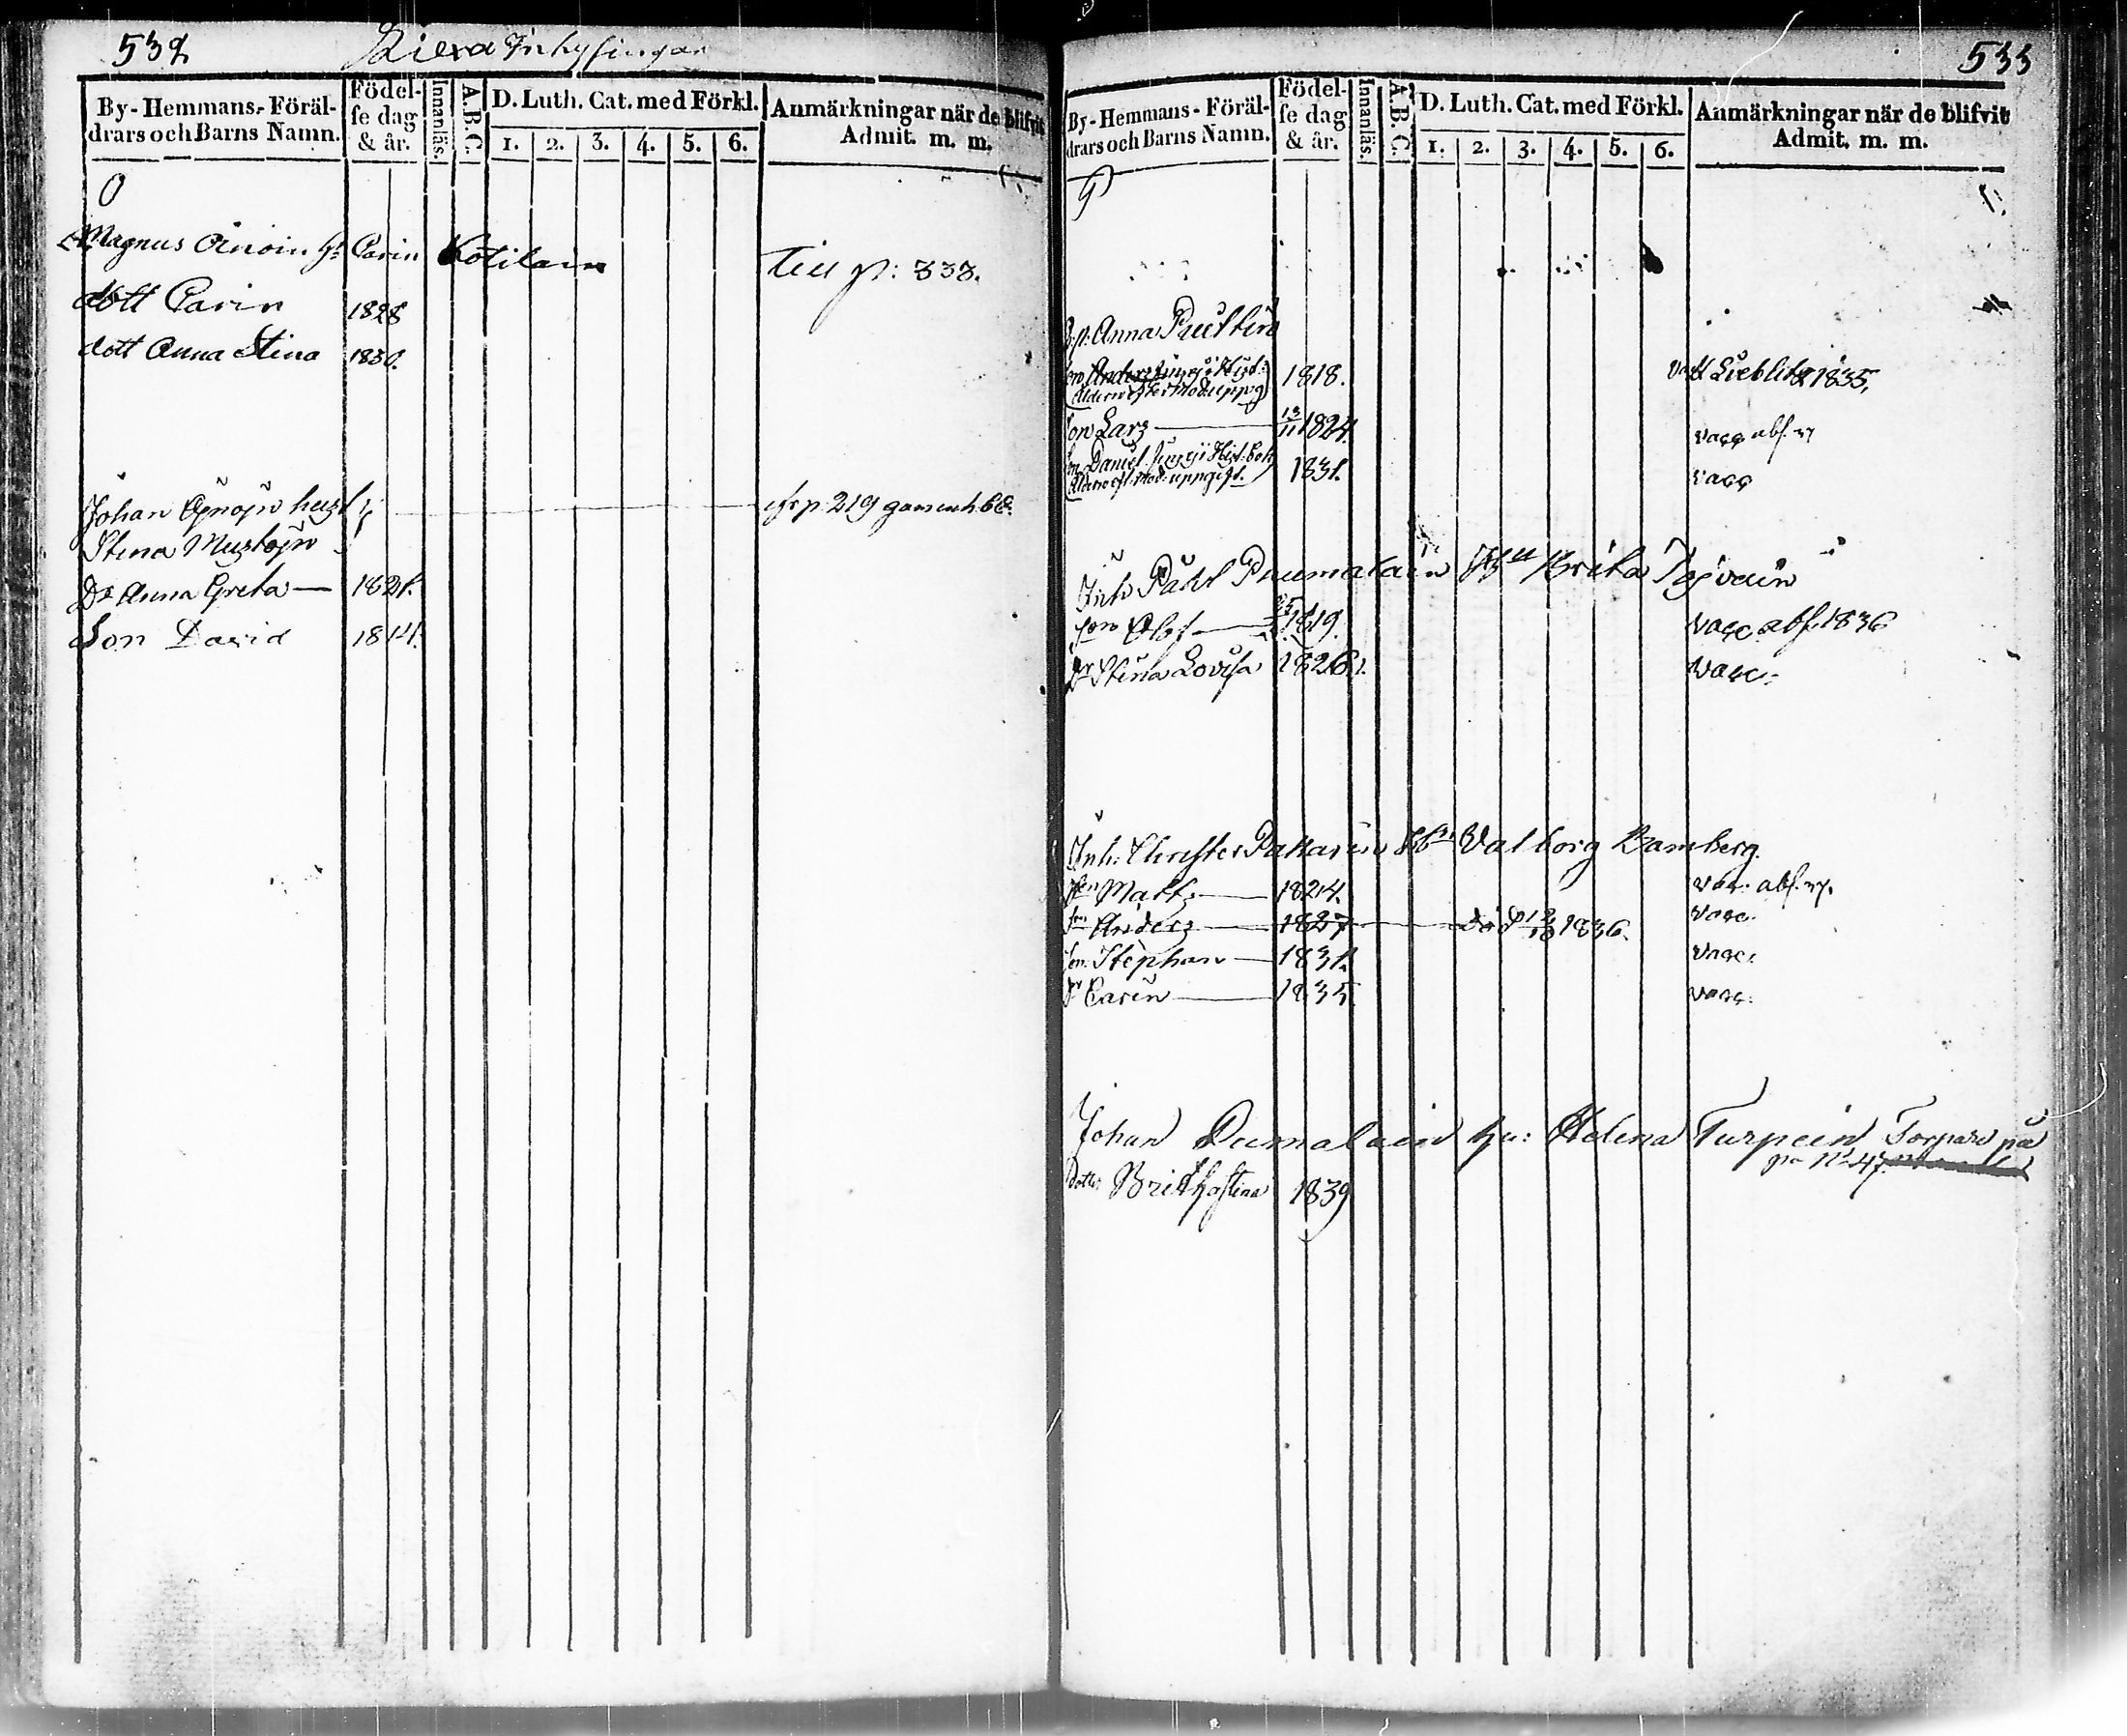 532
Inhysingar
By-Hemmans-Föräl-
drars och Barns Namn.
Födel-
se dag
& år.
Innanläs.
A.B.C.
D. Luth. Cat. med Förkl.
1. 2. 3. 4. 5. 6.
Anmärkningar när de blifvit
Admit. m. m.
Magnus Carin Kotilain till p: 333.
dott Carin 1828
dott Anna Stina 1830.
Johan
Stina
Dr Anna Greta — 1821.
Son David 1814.
533
By-Hemmans-Föräl-
drars och Barns Namn.
Födel-
se dag
& år.
Innanläs.
A.B.C.
D. Luth. Cat. med Förkl.
1. 2. 3. 4. 5. 6.
Anmärkningar när de blifvit
Admit. m. m.
Anna
Anders 1818. 1835.
son Lars — 13/11 1824. vacc abs. 37
son Daniel 1831. vacc
Inh Påhl Puumalain Brita
son Olof — 1819. vacc abs. 1836
Dr Stina Lovisa 1826. vacc.
Inh. Christer Pakarin Valborg Bamberg.
son Matts — 1824. vac. abs. 37.
son Anders — 1827 — död 1836. vacc.
son Stephan — 1831. vacc.
Dr Carin — 1835. vacc.
Johan Pumalain hu: Helena Turpein Torpare på
No 47.
dotter Britha Stina 1839